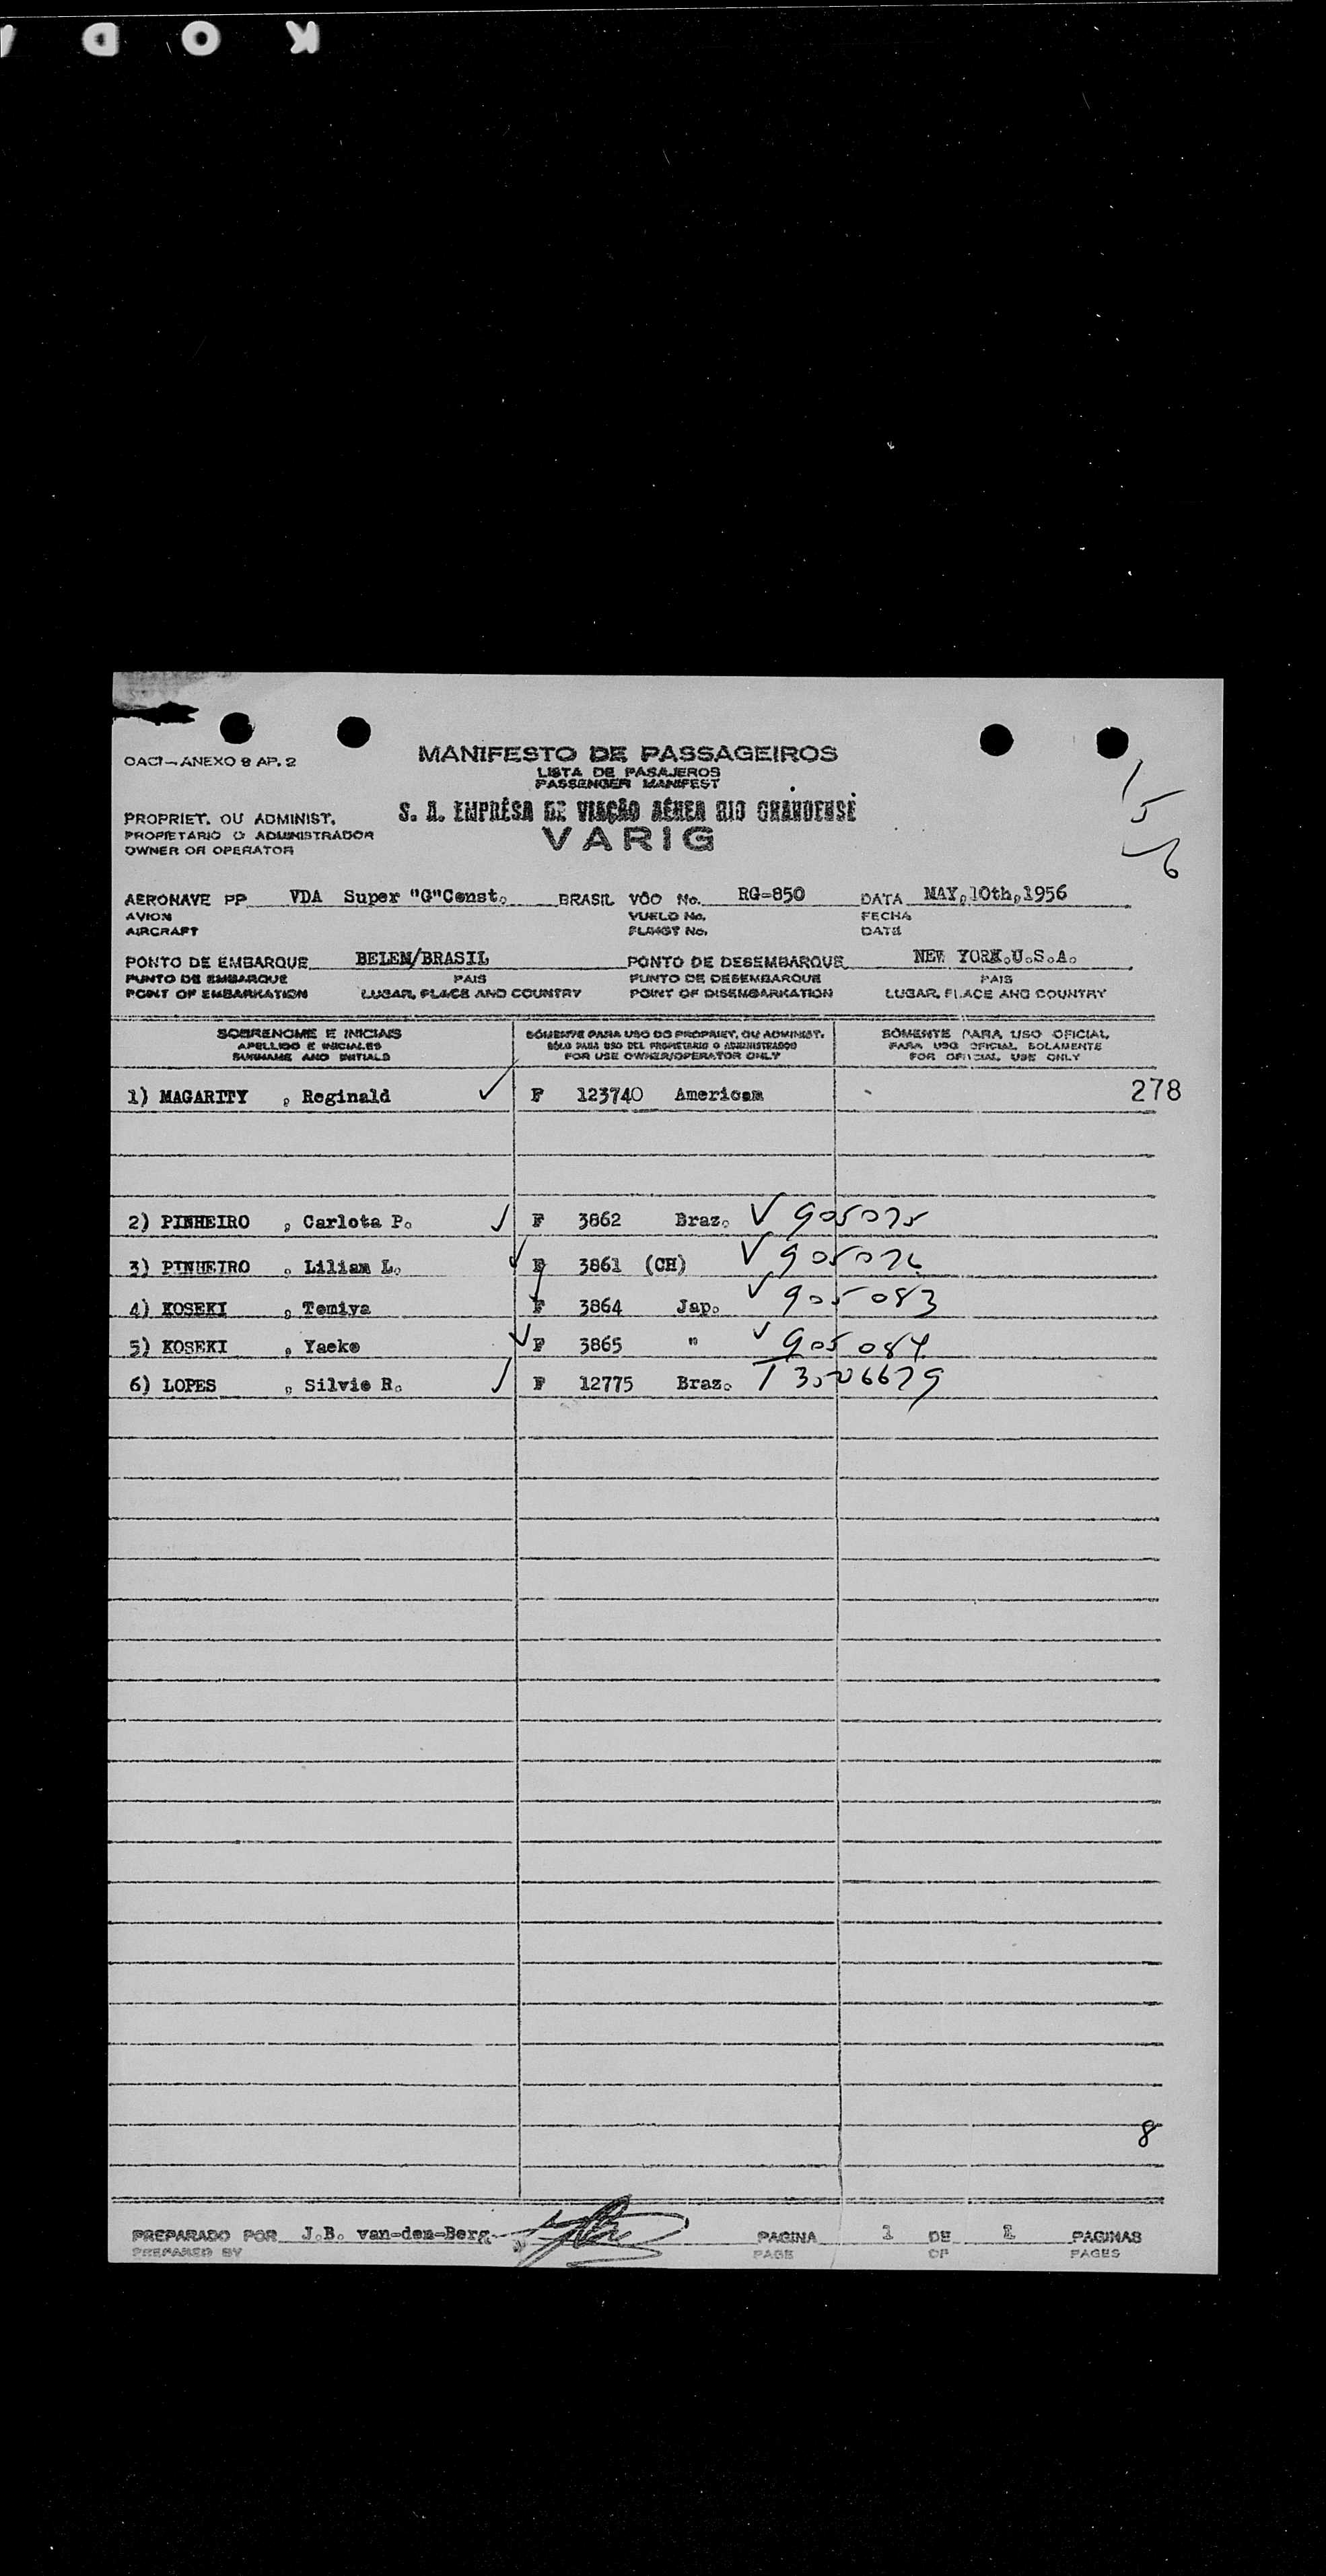 K O D
OACI - ANEXO 9 AP. 2
MANIFESTO DE PASSAGEIROS
LISTA DE PASAJEROS
PASSENGER MANIFEST
PROPRIET. OU ADMINIST.
PROPIETARIO O ADMINISTRADOR
OWNER OR OPERATOR
S. A. EMPRÊSA DE VIAÇÃO AÉREA RIO GRANDENSE
VARIG
AERONAVE PP VDA Super "G"Const. BRASIL VÔO No. RG-850 DATA MAY,10th,1956
AVION VUELO No. FECHA
AIRCRAFT FLIHGT No. DATE
PONTO DE EMBARQUE BELEM/BRASIL PONTO DE DESEMBARQUE NEW YORK.U.S.A.
PUNTO DE EMBARQUE PAIS PUNTO DE DESEMBARQUE PAIS
POINT OF EMBARKATION LUGAR, PLACE AND COUNTRY POINT OF DISEMBARKATION LUGAR, PLACE AND COUNTRY
SOBRENOME E INICIAIS SÓMENTE PARA USO DO PROPRIET. OU ADMINIST. SÓMENTE PARA USO OFICIAL
APELLIDO E INICIALES SÓLO PARA USO DEL PROPIETARIO O ADMINISTRADOR PARA USO OFICIAL SOLAMENTE
SURNAME AND INITIALS FOR USE OWNER/OPERATOR ONLY FOR OFFICIAL USE ONLY
1) MAGARITY , Reginald ✓ F 123740 American 278
2) PINHEIRO , Carlota P. ✓ F 3862 Braz. ✓ 905075
3) PINHEIRO , Liliam L. ✓ 3861 (CH) ✓ 905076
4) KOSEKI , Tomiya F 3864 Jap. ✓ 905083
5) KOSEKI , Yaeko ✓ F 3865 " ✓ 905084
6) LOPES , Silvio R. ✓ F 12775 Braz.
8
PREPARADO POR J.B. van-den-Berg PAGINA 1 DE 1 PAGINAS
PREPARED BY PAGE OF PAGES